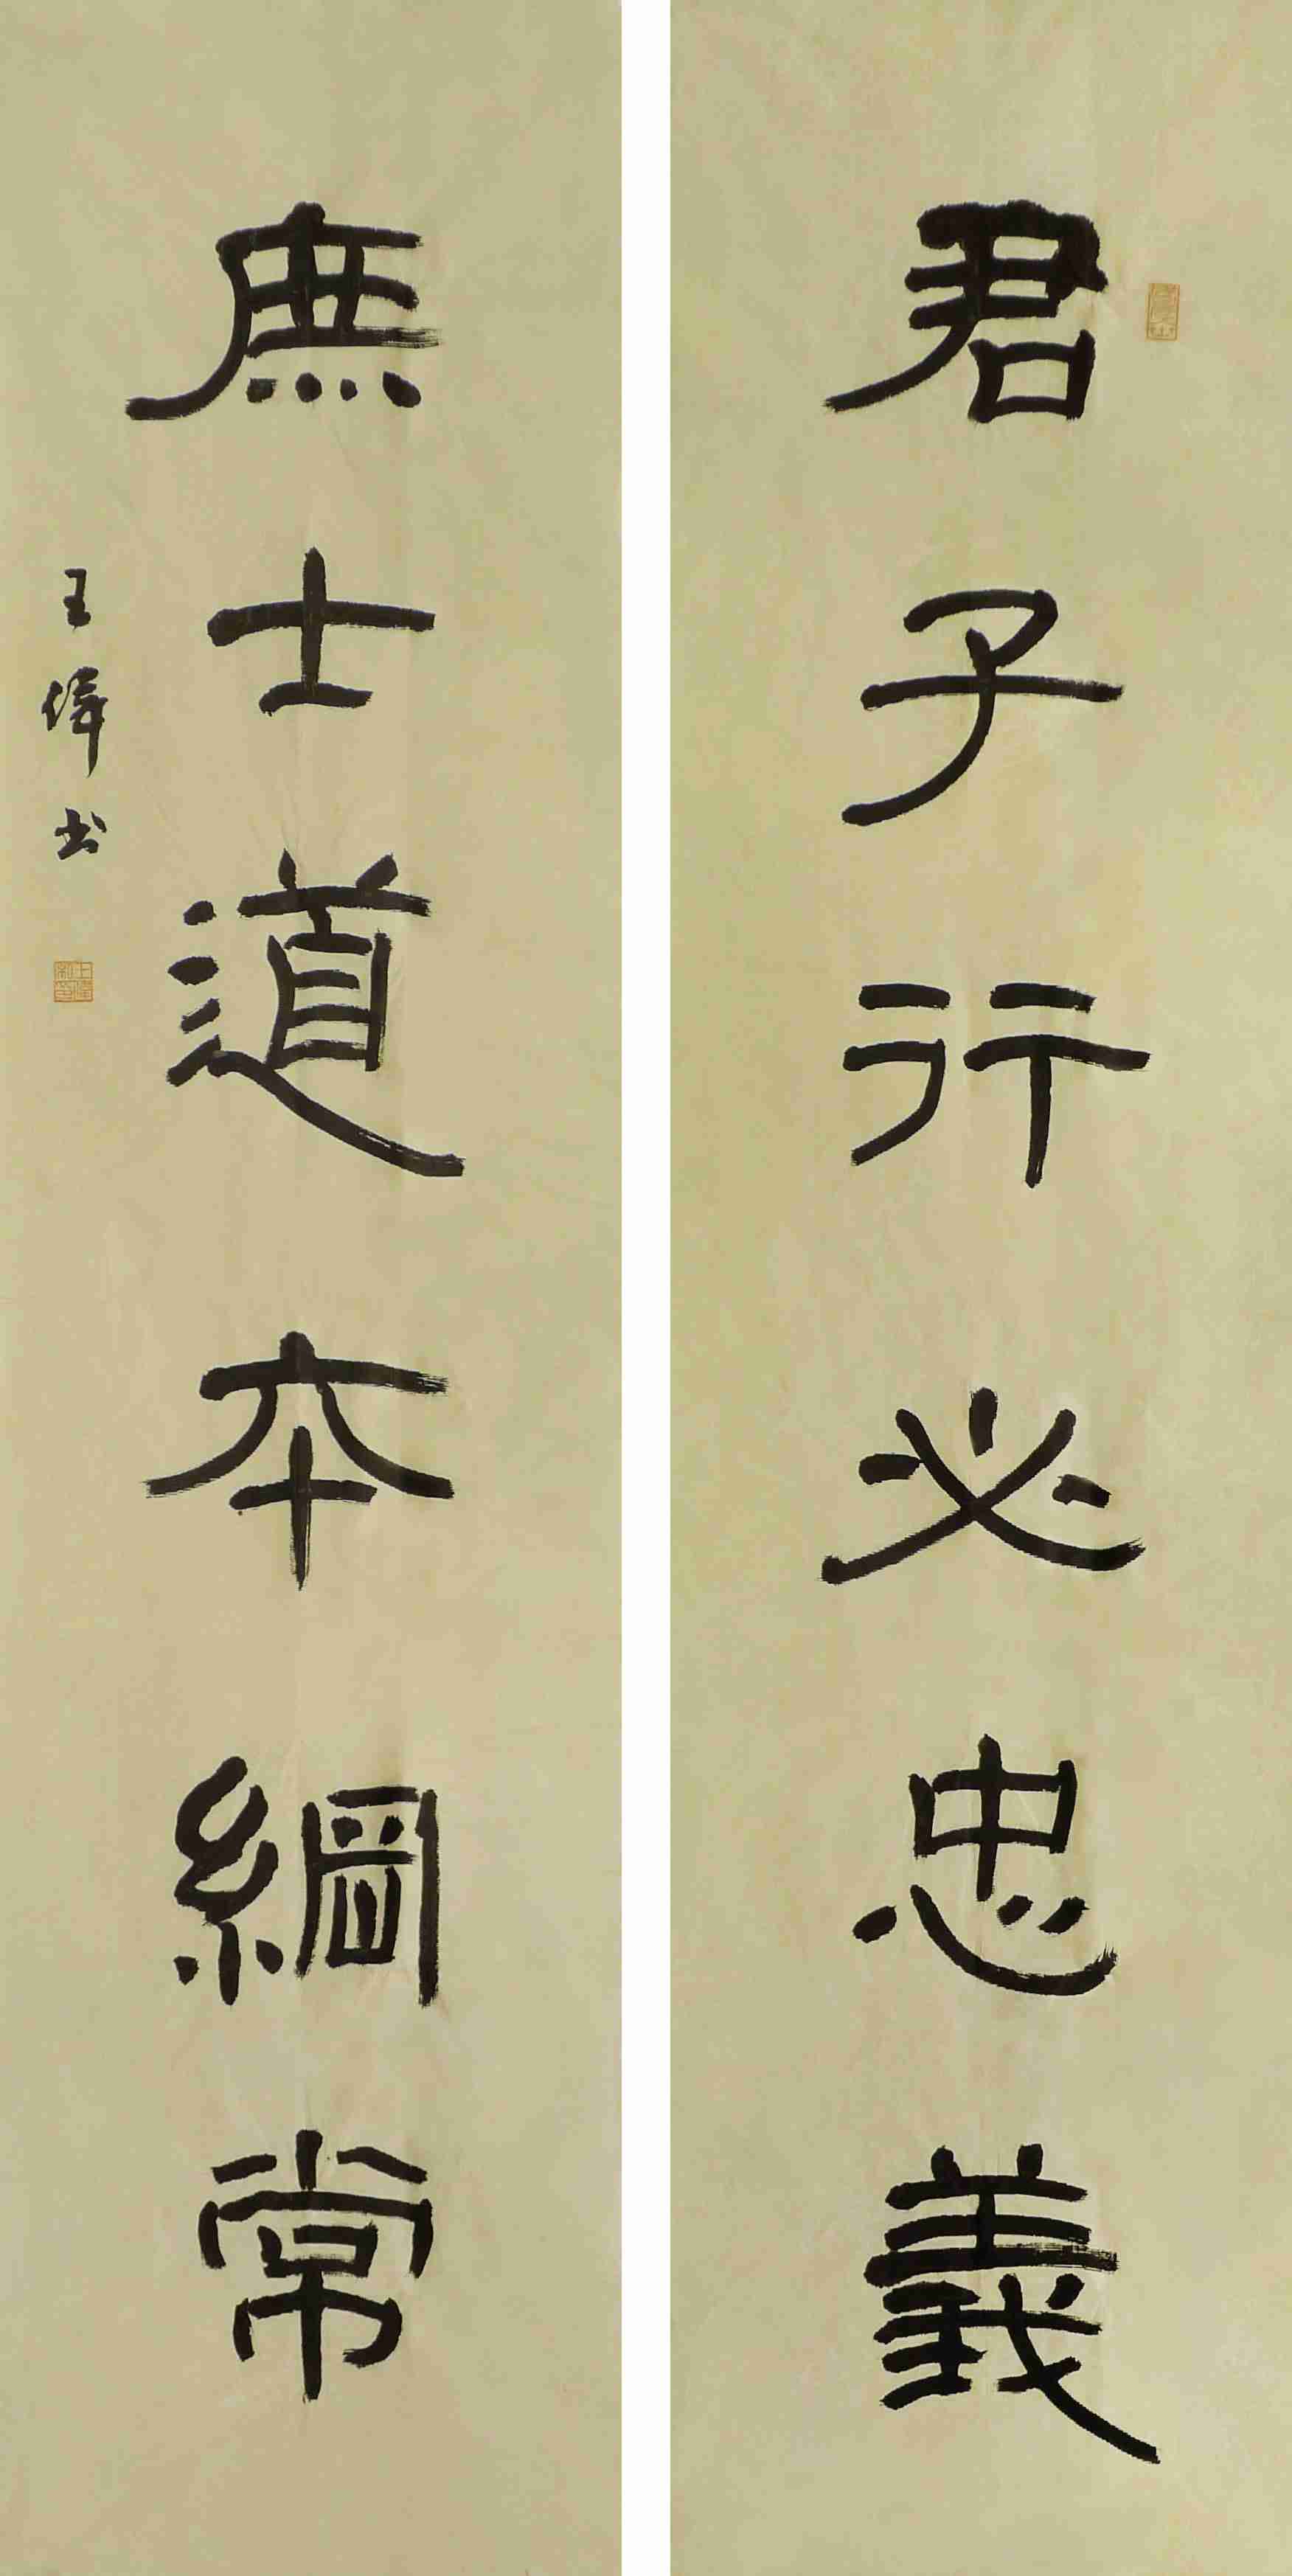 君子行必忠義
庶士道本綱常
王偉書